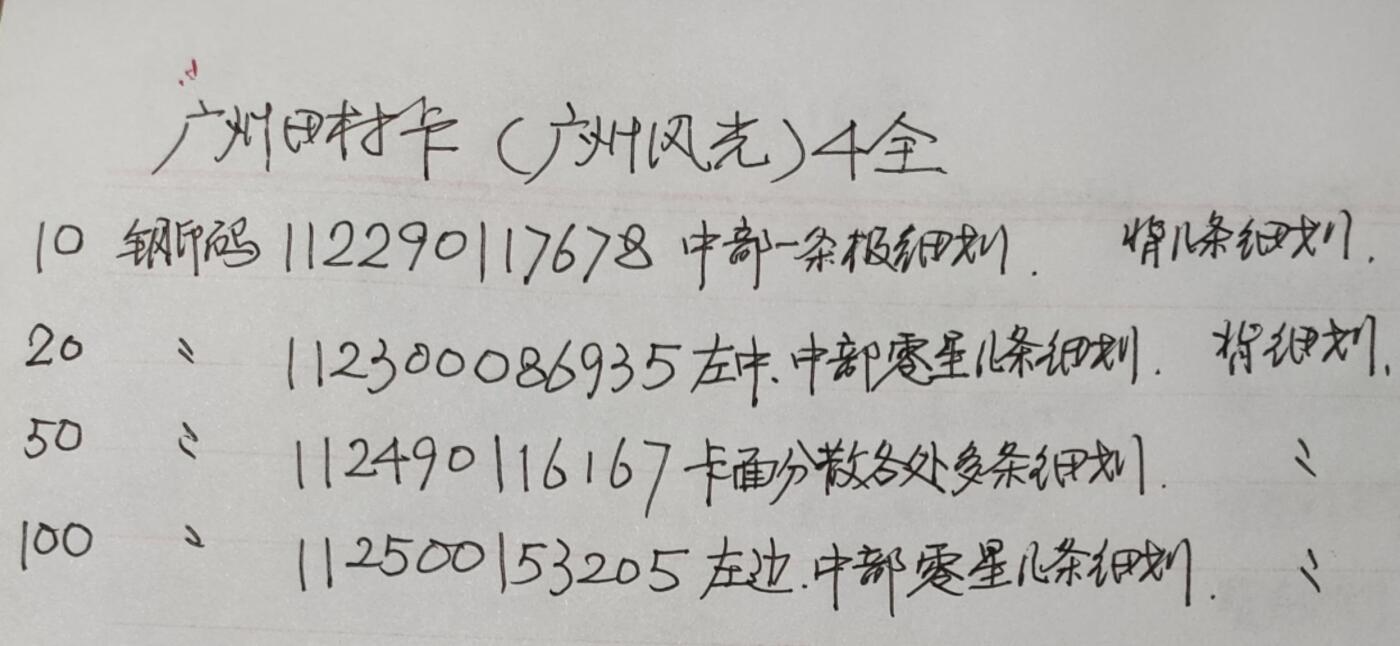 广州田村卡（广州风光）4全
10 钢印码 112290117678 中部一条极细划. 背几条细划.
20 〃 112300086935 左中.中部零星几条细划. 背细划.
50 〃 112490116167 卡面分散各处多条细划. 〃
100 〃 112500153205 左边.中部零星几条细划. 〃